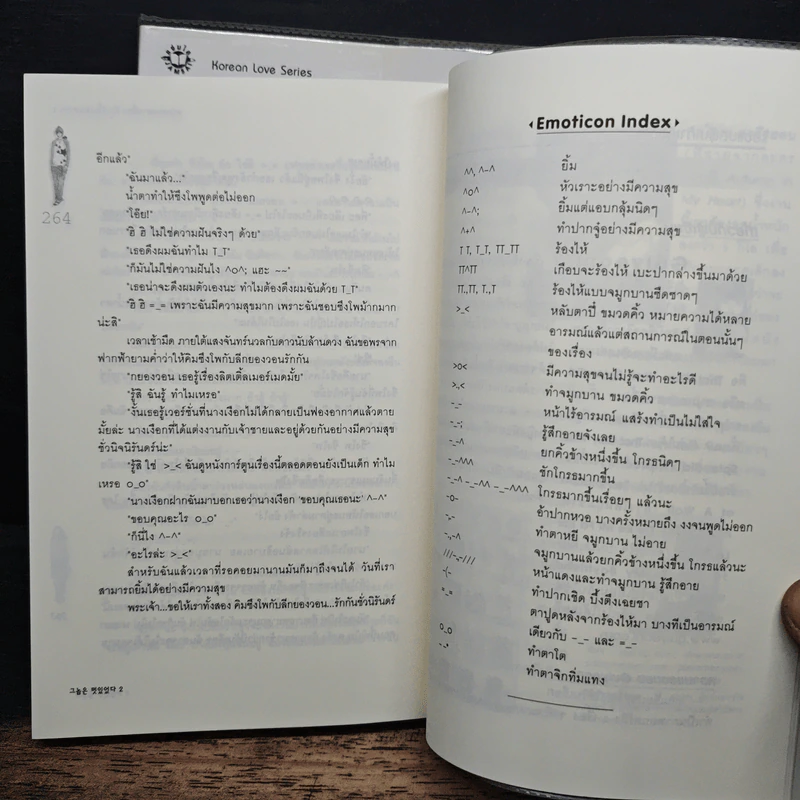 Korean Love Series
264
อีกแล้ว"
"ฉันมาแล้ว..."
น้ำตาทำให้ซึงโพพูดต่อไม่ออก
"โอ๊ย!"
"ฮิ ฮิ ไม่ใช่ความฝันจริงๆ ด้วย"
"เธอดึงผมฉันทำไม T_T"
"ก็มันไม่ใช่ความฝันไง ^o^; แฮะ ~~"
"เธอน่าจะดึงผมตัวเองนะ ทำไมต้องดึงผมฉันด้วย T_T"
"ฮิ ฮิ =_= เพราะฉันมีความสุขมาก เพราะฉันชอบซึงโพม้ากมาก
น่ะสิ"
เวลาเข้ามืด ภายใต้แสงจันทร์นวลกับดาวนับล้านดวง ฉันขอพรจาก
ฟากฟ้ายามค่ำว่าให้คิมซึงโพกับลีกยองวอนรักกัน
"กยองวอน เธอรู้เรื่องลิตเติ้ลเมอร์เมดมั้ย"
"รู้สิ ฉันรู้ ทำไมเหรอ"
"งั้นเธอรู้เวอร์ชั่นที่นางเงือกไม่ได้กลายเป็นฟองอากาศแล้วตาย
มั้ยล่ะ นางเงือกที่ได้แต่งงานกับเจ้าชายและอยู่ด้วยกันอย่างมีความสุข
ชั่วนิจนิรันดร์น่ะ"
"รู้สิ ใช่ >_< ฉันดูหนังการ์ตูนเรื่องนี้ตลอดตอนยังเป็นเด็ก ทำไม
เหรอ o_o"
"นางเงือกฝากฉันมาบอกเธอว่านางเงือก 'ขอบคุณเธอนะ' ^-^"
"ขอบคุณอะไร o_o"
"ก็นี่ไง ^-^"
"อะไรล่ะ >_<"
สำหรับฉันแล้วเวลาที่รอคอยมานานมันก็มาถึงจนได้ วันที่เรา
สามารถยิ้มได้อย่างมีความสุข
พระเจ้า...ขอให้เราทั้งสอง คิมซึงโพกับลีกยองวอน...รักกันชั่วนิรันดร์
그놈은 멋있었다 2
Emoticon Index
^^, ^-^ ยิ้ม
^o^ หัวเราะอย่างมีความสุข
^-^; ยิ้มแต่แอบกลุ้มนิดๆ
^+^ ทำปากจู๋อย่างมีความสุข
T T, T_T, TT_TT ร้องไห้
TT^TT เกือบจะร้องไห้ เบะปากล่างขึ้นมาด้วย
TT.,TT, T.,T ร้องไห้แบบจมูกบานซืดซาดๆ
>_< หลับตาปี๋ ขมวดคิ้ว หมายความได้หลาย
อารมณ์แล้วแต่สถานการณ์ในตอนนั้นๆ
ของเรื่อง
>o< มีความสุขจนไม่รู้จะทำอะไรดี
>,.< ทำจมูกบาน ขมวดคิ้ว
-_- หน้าไร้อารมณ์ แสร้งทำเป็นไม่ใส่ใจ
-_-; รู้สึกอายจังเลย
-_-^ ยกคิ้วข้างหนึ่งขึ้น โกรธนิดๆ
-_-^^^ ชักโกรธมากขึ้น
-_-^ -_-^^ -_-^^^ โกรธมากขึ้นเรื่อยๆ แล้วนะ
-o- อ้าปากหวอ บางครั้งหมายถึง งงจนพูดไม่ออก
-,.- ทำตาหยี จมูกบาน ไม่อาย
-,.-^ จมูกบานแล้วยกคิ้วข้างหนึ่งขึ้น โกรธแล้วนะ
///-,.-/// หน้าแดงและทำจมูกบาน รู้สึกอาย
-(- ทำปากเชิด บึ้งตึงเฉยชา
=_= ตาปูดหลังจากร้องไห้มา บางทีเป็นอารมณ์
เดียวกับ -_- และ =_-
o_o ทำตาโต
ทำตาจิกทิ่มแทง